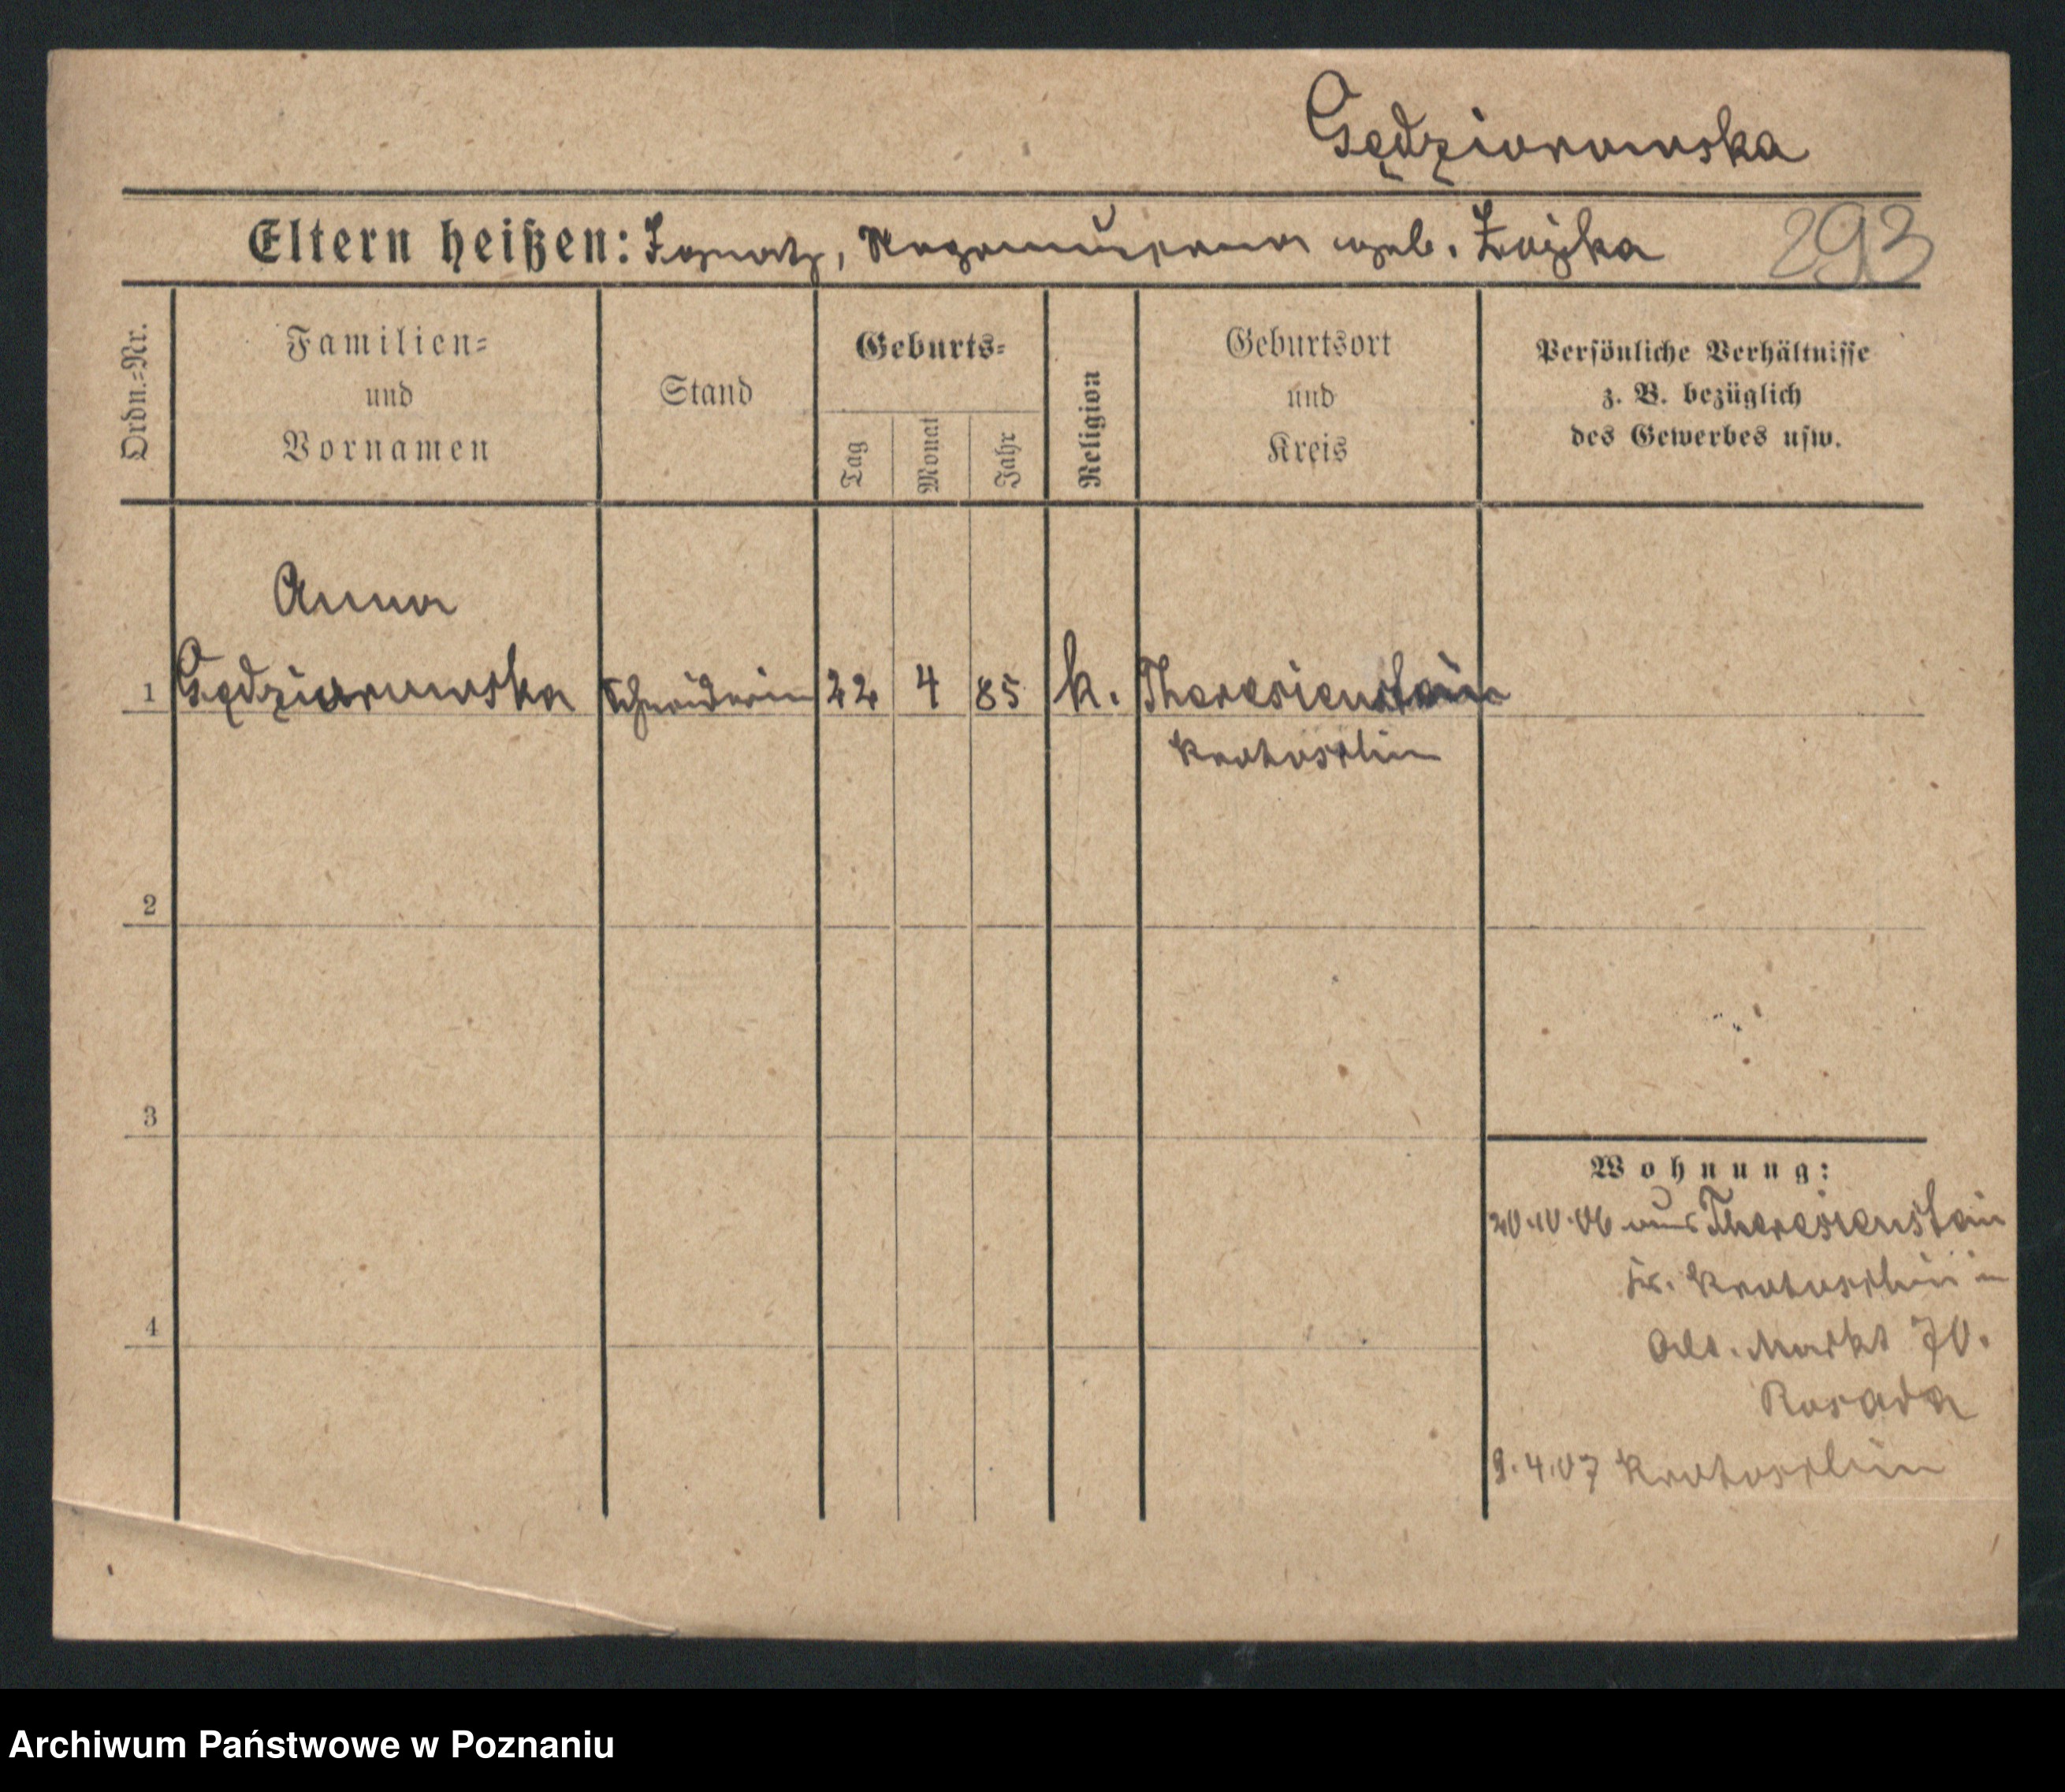 Gędziorowska
Eltern heißen: Ignatz, geb. Zoyka
293
Ordn.=Nr.
Familien=
und
Vornamen
Stand
Geburts=
Tag
Monat
Jahr
Religion
Geburtsort
und
Kreis
Persönliche Verhältnisse
z. B. bezüglich
des Gewerbes usw.
Anna
1 Gędziorowska Schneiderin 22 4 85 k. Theresienstein
Krotoschin
2
3
Wohnung:
20.10.06 aus Theresienstein
Kr. Krotoschin in
4
Alt. Markt 70.
9.4.07 Krotoschin
Archiwum Państwowe w Poznaniu